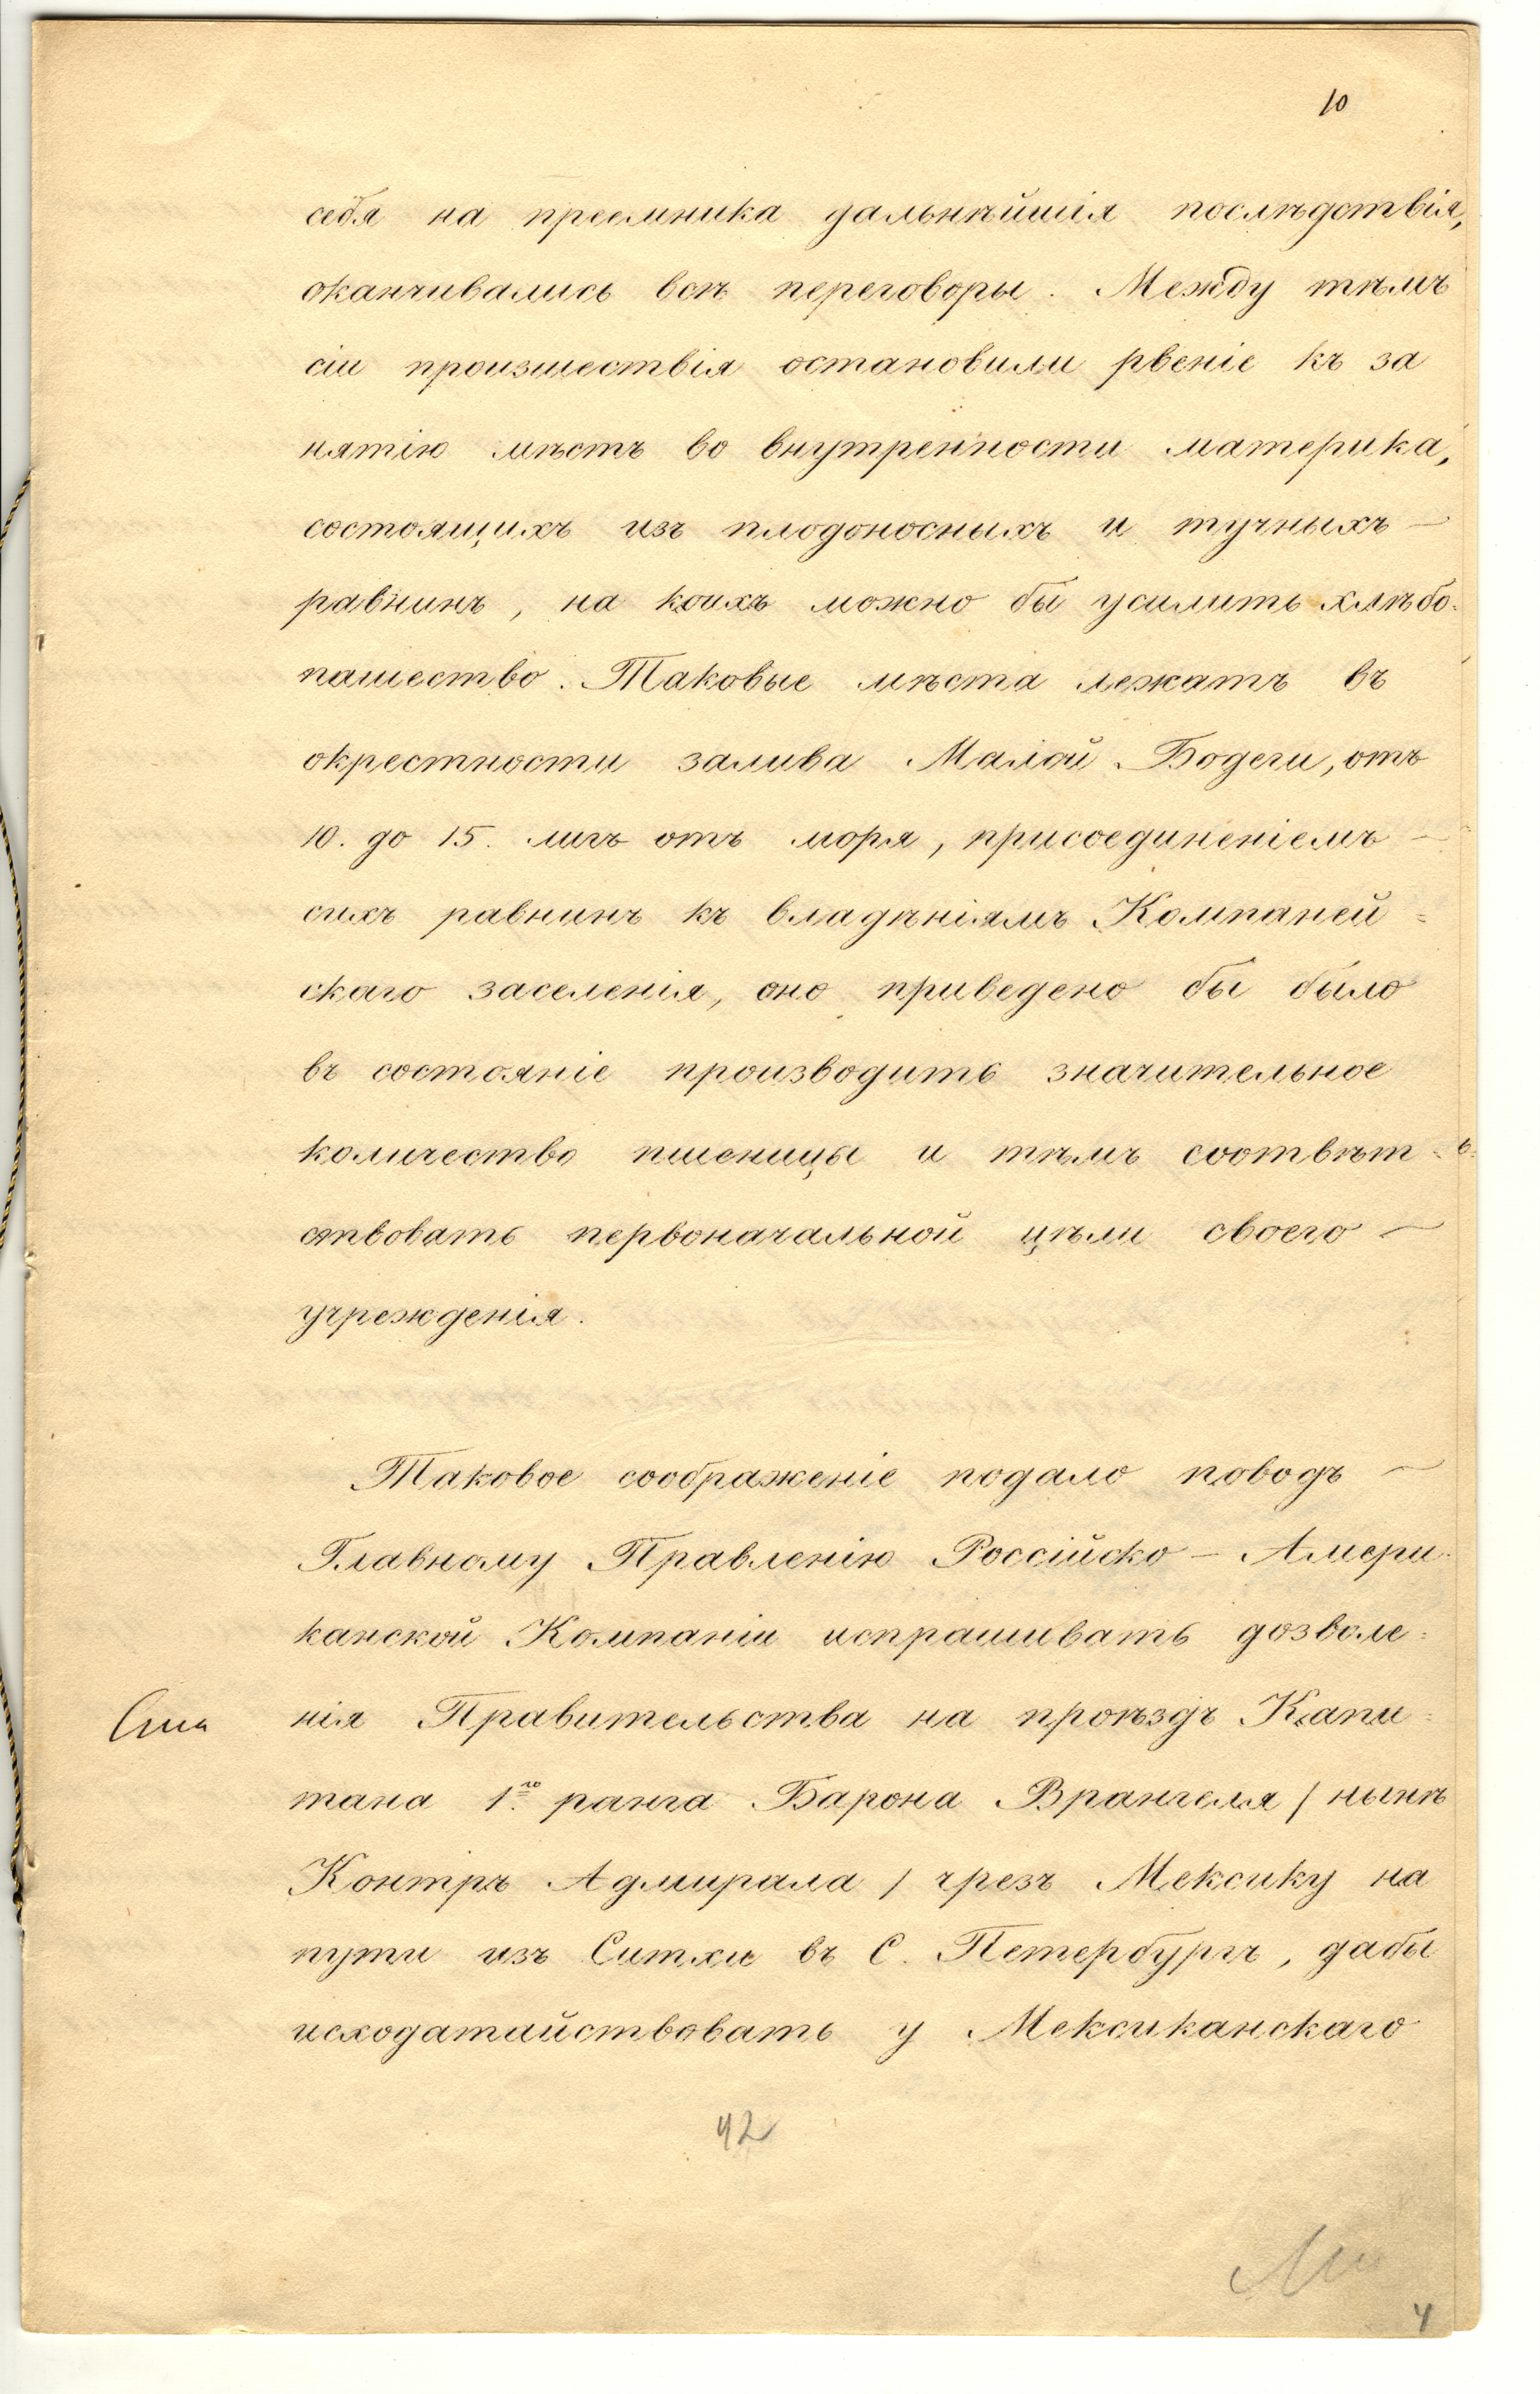 10
себя на преемника дальнѣйшія послѣдствія,
оканчивались всѣ переговоры. Между тѣмъ
сіи произшествія остановили рвеніе къ за
нятію мѣстъ во внутренности материка,
состоящихъ изъ плодоносныхъ и тучныхъ —
равнинъ, на коихъ можно бы усилить хлѣбо=
пашество. Таковые мѣста лежатъ въ
окрестности залива Малой Бодеги, отъ
10. до 15. лигъ отъ моря, присоединеніемъ —
сихъ равнинъ къ владѣніямъ Компаней=
скаго заселенія, оно приведено бы было
въ состояніе производить значительное
количество пшеницы и тѣмъ соотвѣт=
ствовать первоначальной цѣли своего —
учрежденія.
Таковое соображеніе подало поводъ —
Главному Правленію Россійско — Амери=
канской Компаніи испрашивать дозволе=
нія Правительства на проѣздъ Капи=
тана 1го ранга Барона Врангеля / нынѣ
Контръ Адмирала / чрезъ Мексику на
пути изъ Ситхи въ С. Петербургъ, дабы
исходатайствовать у Мексиканскаго
42
4